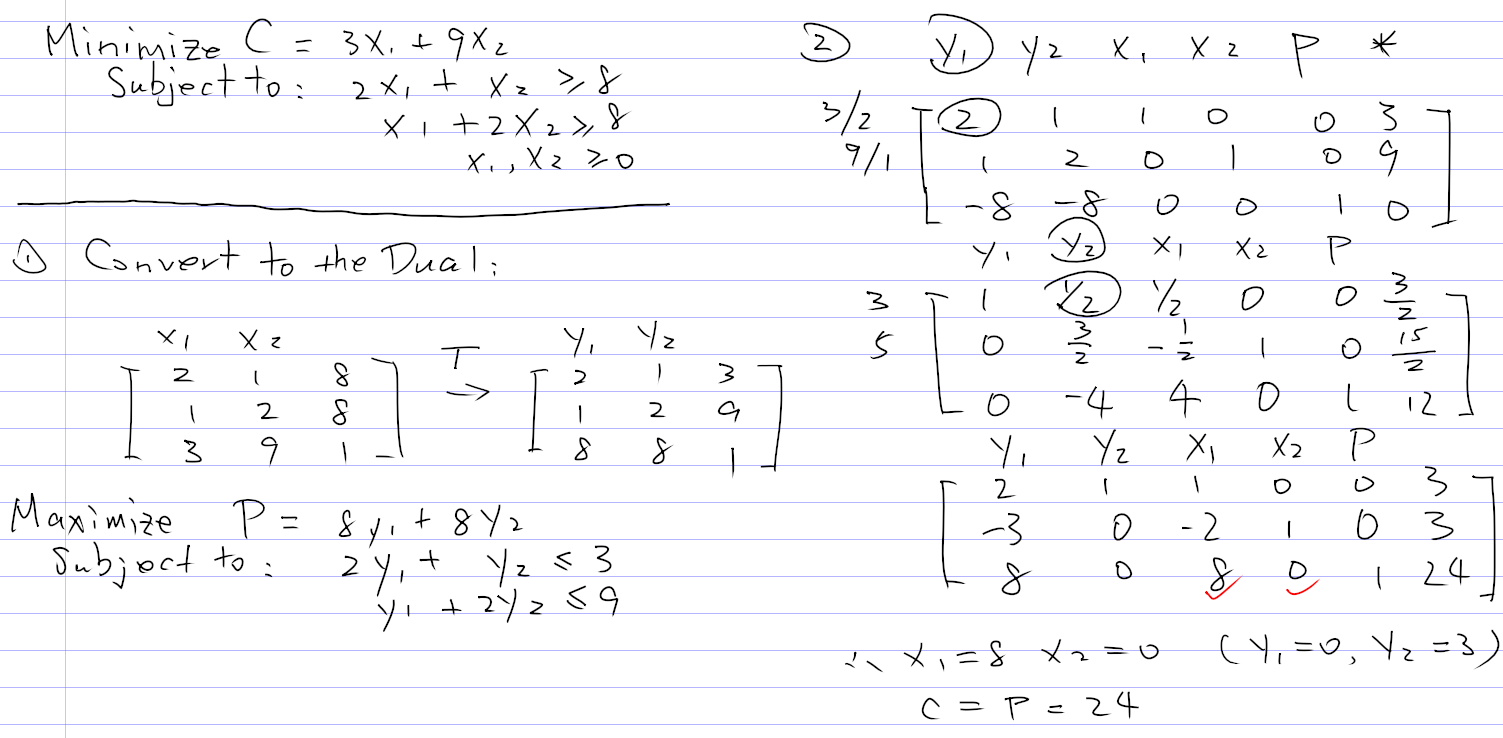 Minimize C = 3x₁ + 9x₂
Subject to: 2x₁ + x₂ ≥ 8
x₁ + 2x₂ ≥ 8
x₁, x₂ ≥ 0
① Convert to the Dual:
x₁ x₂
2 1 8
1 2 8
3 9 1
T
→
y₁ y₂
2 1 3
1 2 9
8 8 1
Maximize P = 8y₁ + 8y₂
Subject to: 2y₁ + y₂ ≤ 3
y₁ + 2y₂ ≤ 9
② y₁ y₂ x₁ x₂ P *
3/2 2 1 1 0 0 3
9/1 1 2 0 1 0 9
-8 -8 0 0 1 0
y₁ y₂ x₁ x₂ P
3 1 1/2 1/2 0 0 3/2
5 0 3/2 -1/2 1 0 15/2
0 -4 4 0 1 12
y₁ y₂ x₁ x₂ P
2 1 1 0 0 3
-3 0 -2 1 0 3
8 0 8 0 1 24
∴ x₁ = 8 x₂ = 0 (y₁ = 0, y₂ = 3)
C = P = 24